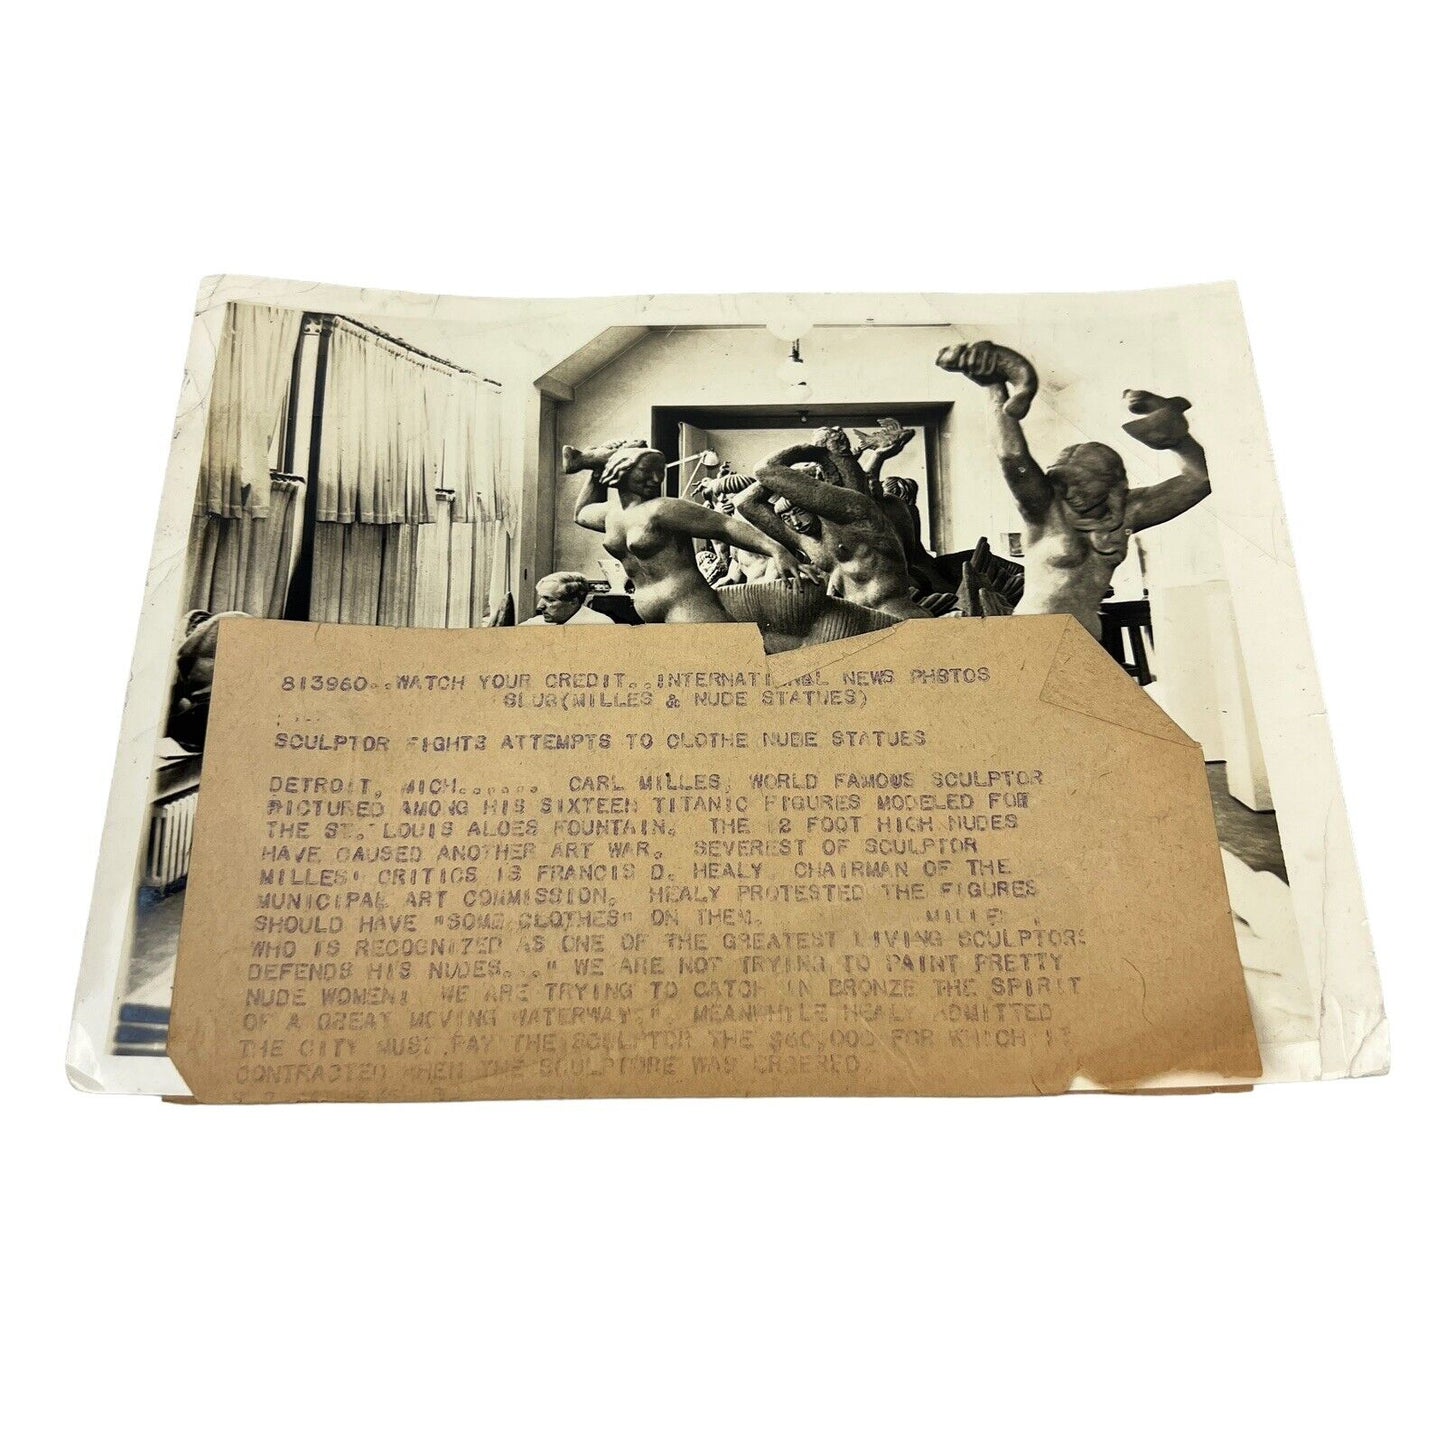 813960..WATCH YOUR CREDIT..INTERNATIONAL NEWS PHOTOS
SLUG(MILLES & NUDE STATUES)
SCULPTOR FIGHTS ATTEMPTS TO CLOTHE NUDE STATUES
DETROIT, MICH...... CARL MILLES, WORLD FAMOUS SCULPTOR
PICTURED AMONG HIS SIXTEEN TITANIC FIGURES MODELED FOR
THE ST. LOUIS ALOES FOUNTAIN. THE 12 FOOT HIGH NUDES
HAVE CAUSED ANOTHER ART WAR. SEVEREST OF SCULPTOR
MILLES' CRITICS IS FRANCIS D. HEALY, CHAIRMAN OF THE
MUNICIPAL ART COMMISSION. HEALY PROTESTED THE FIGURES
SHOULD HAVE "SOME CLOTHES" ON THEM. MILLES,
WHO IS RECOGNIZED AS ONE OF THE GREATEST LIVING SCULPTORS
DEFENDS HIS NUDES..." WE ARE NOT TRYING TO PAINT PRETTY
NUDE WOMEN! WE ARE TRYING TO CATCH IN BRONZE THE SPIRIT
OF A GREAT MOVING WATERWAY." MEANWHILE HEALY ADMITTED
THE CITY MUST PAY THE SCULPTOR THE $60,000 FOR WHICH IT
CONTRACTED WHEN THE SCULPTURE WAS ORDERED.